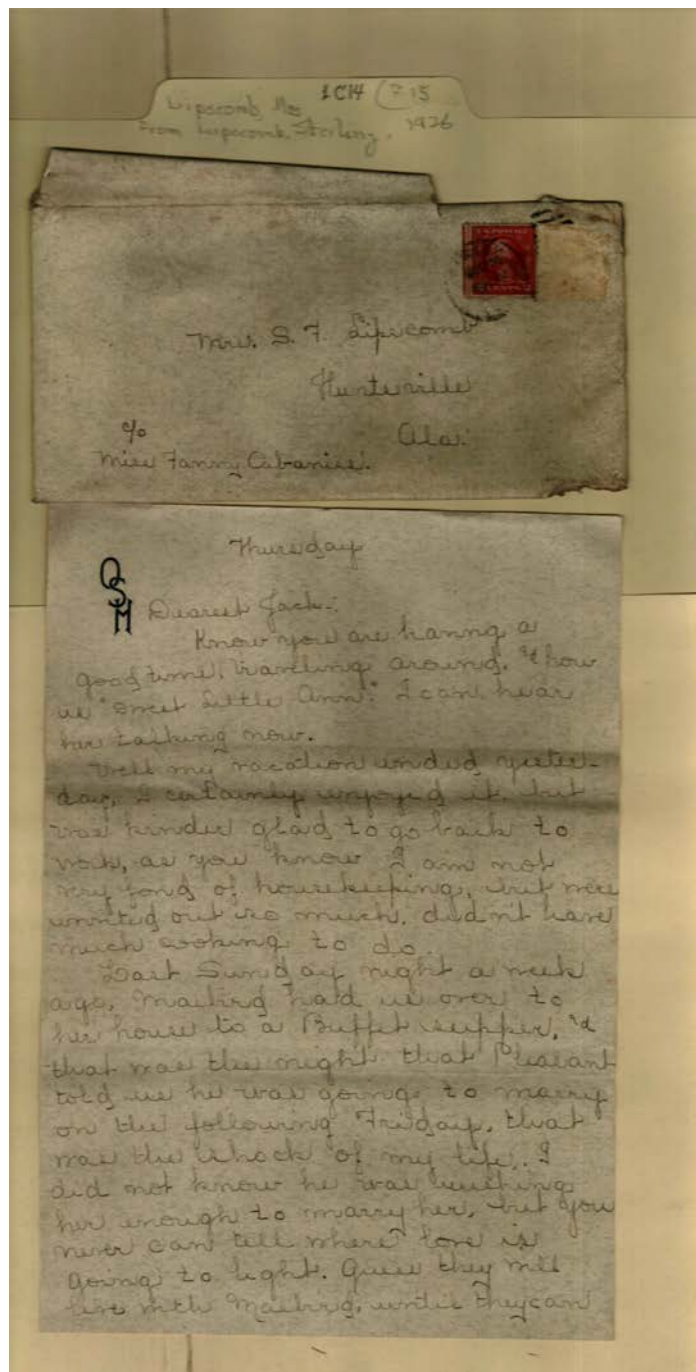 LC14 F15
Lipscomb, Mrs
From Lipscomb, Sterling, 1926
Mrs. S. F. Lipscomb
Huntsville
Ala.
c/o
Miss Fanny Cabaniss.
Thursday
OSM
Dearest Jack:
Know you are having a
good time, traveling around, & how
is "Sweet Little Ann." I can hear
her talking now.
Well my vacation ended yester-
day, I certainly enjoyed it, but
was kinder glad to go back to
work, as you know I am not
very fond of housekeeping, but were
invited out so much, didn't have
much cooking to do.
Last Sunday night a week
ago, had us over to
her house to a Buffet supper, &
that was the night that Pleasant
told us he was going to marry
on the following Friday, that
was the shock of my life. I
did not know he was rushing
her enough to marry her, but you
never can tell where love is
going to light. Guess they will
live with until they can